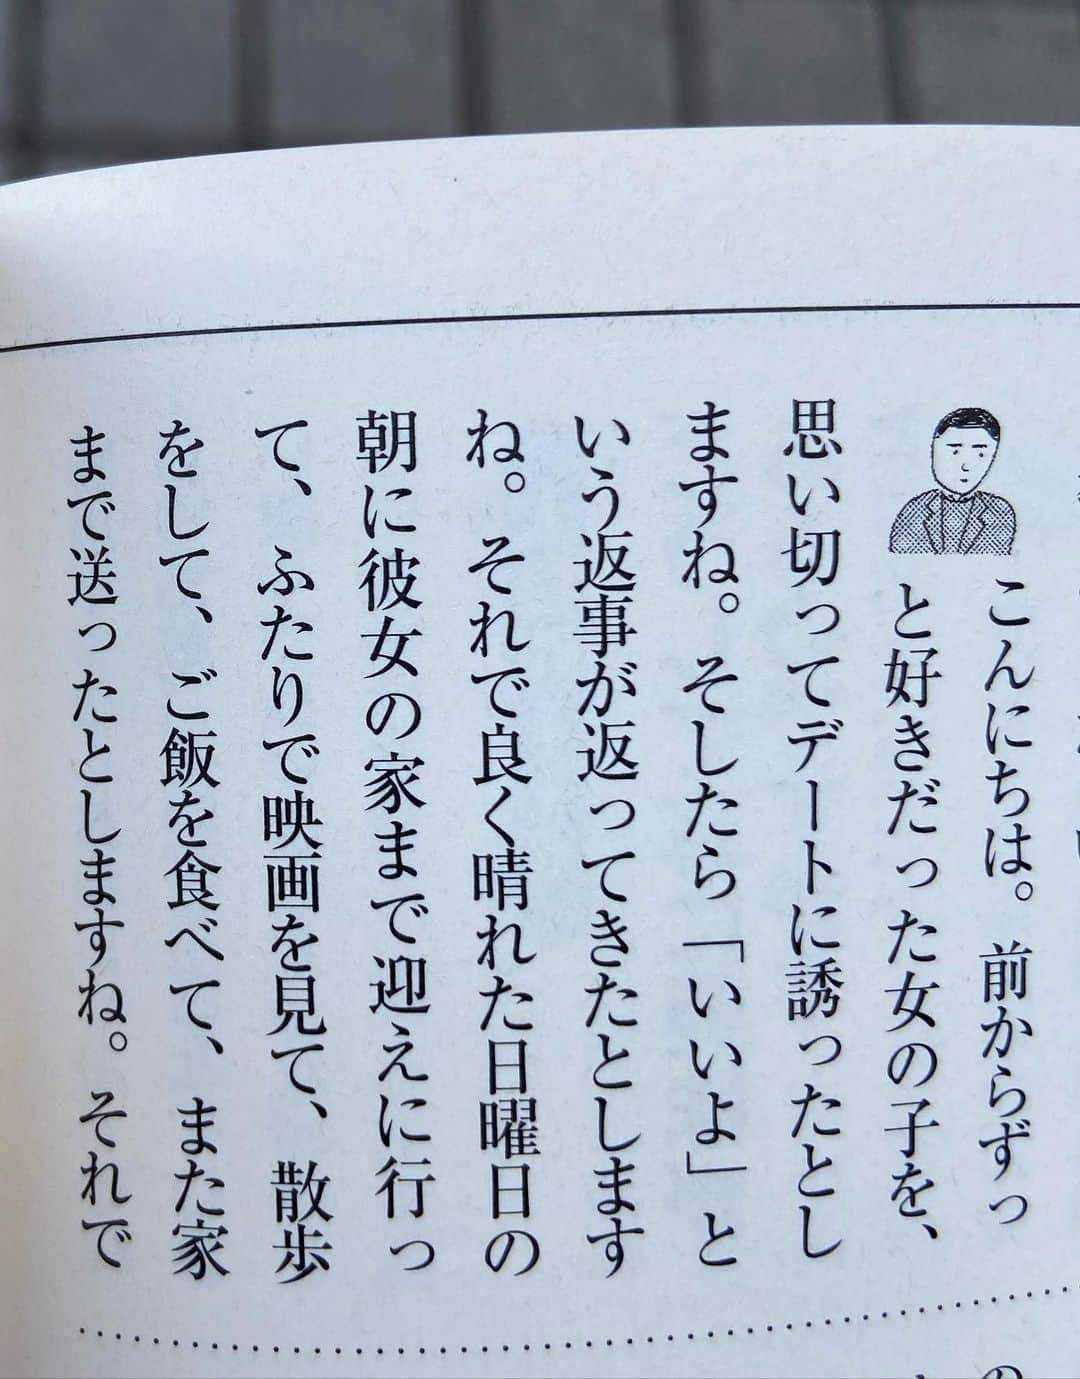 こんにちは。前からずっ
と好きだった女の子を、
思い切ってデートに誘ったとし
ますね。そしたら「いいよ」と
いう返事が返ってきたとします
ね。それで良く晴れた日曜日の
朝に彼女の家まで迎えに行っ
て、ふたりで映画を見て、散歩
をして、ご飯を食べて、また家
まで送ったとしますね。それで